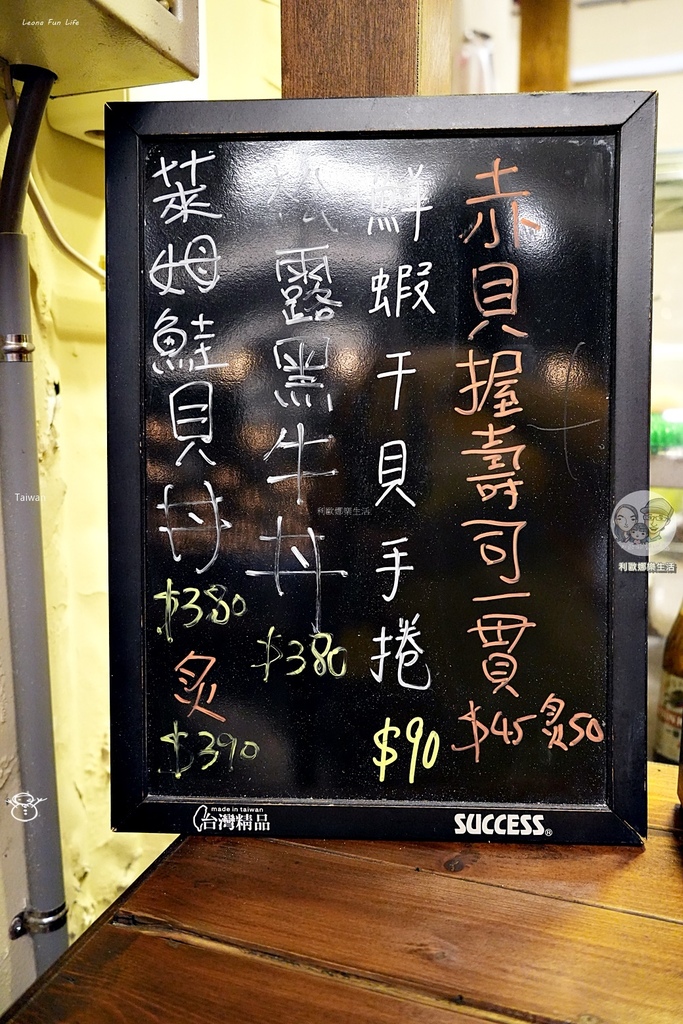 Leone Fun Life
赤貝握壽司一貫
$45 炙50
鮮蝦干貝手捲
$90
松露黑牛丼
$380
萊姆鮭貝丼
$380
炙
$390
利歐娜樂生活
Taiwan
利歐娜樂生活
made in taiwan
台灣精品
SUCCESS®